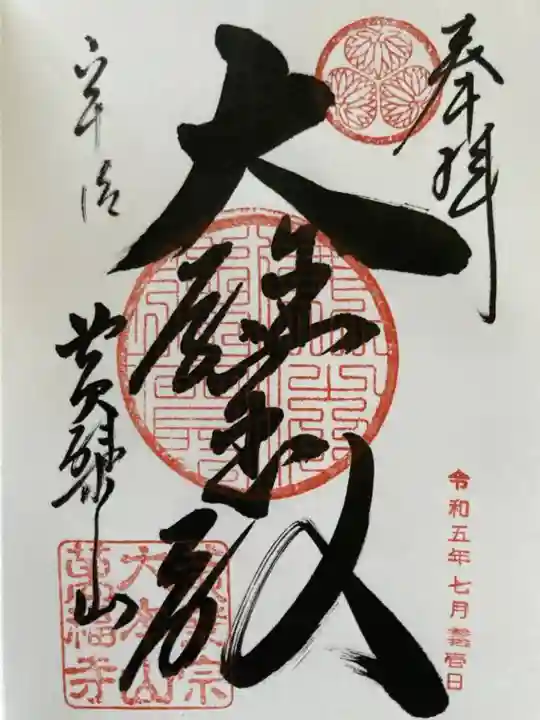 奉拝
令和五年七月
大雄寳殿
宇治
黄檗山
黄檗宗
大本山
萬福寺